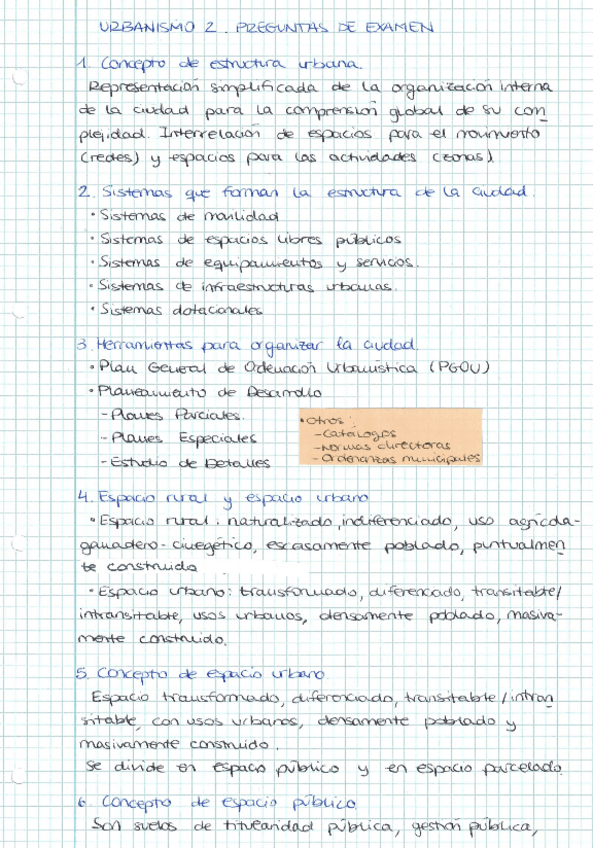 URBANISMO 2. PREGUNTAS DE EXAMEN
1. Concepto de estructura urbana.
Representación simplificada de la organización interna
de la ciudad para la comprensión global de su com
plejidad. Interrelación de espacios para el movimiento
(redes) y espacios para las actividades (zonas).
2. Sistemas que forman la estructura de la ciudad.
• Sistemas de movilidad
• Sistemas de espacios libres públicos
• Sistemas de equipamientos y servicios.
• Sistemas de infraestructuras urbanas.
• Sistemas dotacionales
3. Herramientas para organizar la ciudad.
• Plan General de Ordenación Urbanística (PGOU)
• Planeamiento de Desarrollo
- Planes Parciales.
- Planes Especiales
- Estudio de Detalles
• Otros:
- Catálogos
- Normas directoras
- Ordenanzas municipales
4. Espacio rural y espacio urbano
• Espacio rural: naturalizado, indiferenciado, uso agrícola-
ganadero-cinegético, escasamente poblado, puntualmen
te construido
• Espacio urbano: transformado, diferenciado, transitable/
intransitable, usos urbanos, densamente poblado, masiva-
mente construido.
5. Concepto de espacio urbano
Espacio transformado, diferenciado, transitable/intran
sitable, con usos urbanos, densamente poblado y
masivamente construido.
Se divide en espacio público y en espacio parcelado.
6. Concepto de espacio público
Son suelos de titularidad pública, gestión pública,